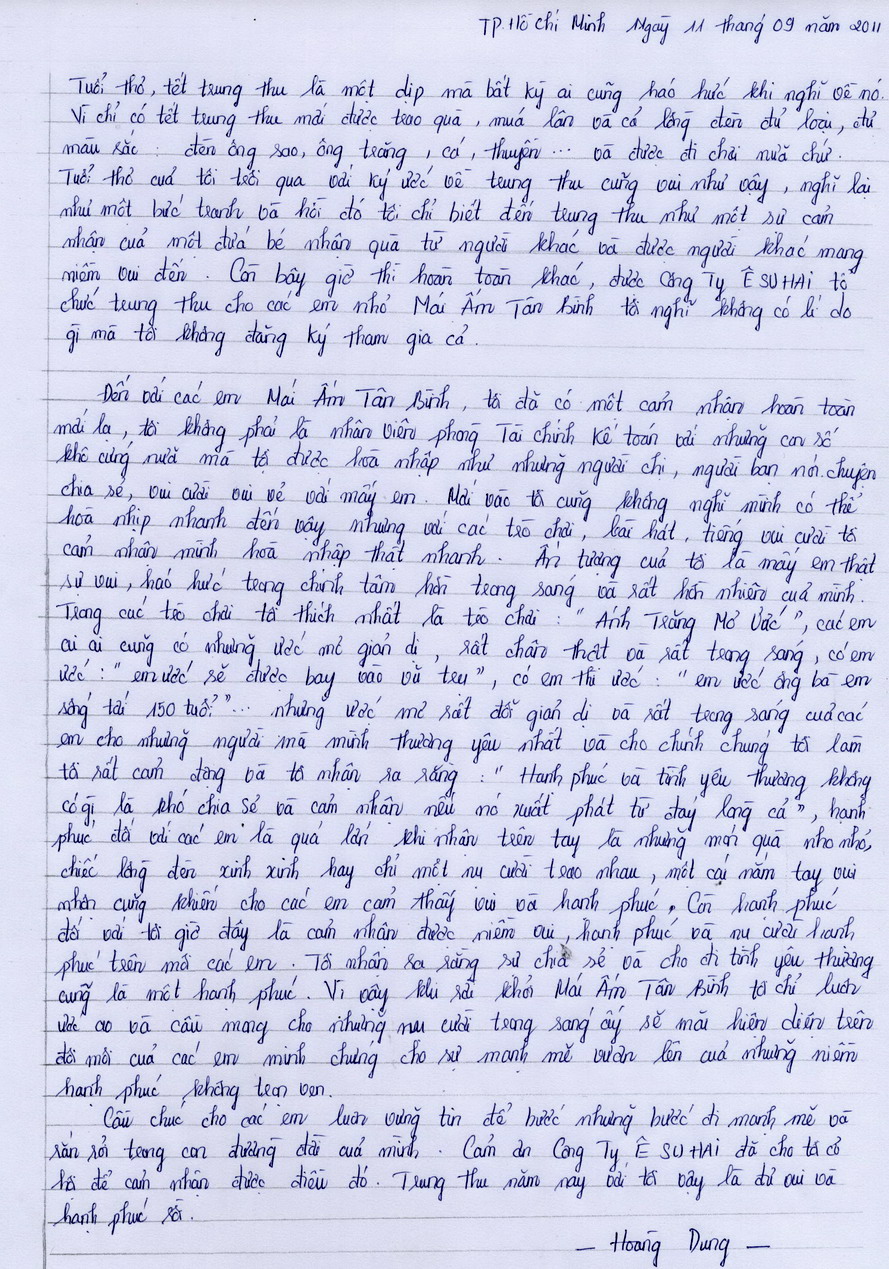 TP. Hồ Chí Minh Ngày 11 tháng 09 năm 2011
Tuổi thơ, tết trung thu là một dịp mà bất kỳ ai cũng háo hức khi nghĩ về nó.
Vì chỉ có tết trung thu mới được trao quà, múa lân và cả lồng đèn đủ loại, đủ
màu sắc : đèn ông sao, ông trăng, cá, thuyền ... và được đi chơi nữa chứ.
Tuổi thơ của tôi trôi qua với ký ức về trung thu cũng vui như vậy, nghĩ lại
như một bức tranh và hồi đó tôi chỉ biết đến trung thu như một sự cảm
nhận của một đứa bé nhận quà từ người khác và được người khác mang
niềm vui đến. Còn bây giờ thì hoàn toàn khác, được Công Ty Ê SU HAI tổ
chức trung thu cho các em nhỏ Mái Ấm Tân Bình tôi nghĩ không có lí do
gì mà tôi không đăng ký tham gia cả.
Đến với các em Mái Ấm Tân Bình, tôi đã có một cảm nhận hoàn toàn
mới lạ, tôi không phải là nhân viên phòng Tài chính kế toán với những con số
khô cứng nữa mà tôi được hoà nhập như những người chị, người bạn nói chuyện
chia sẻ, vui cười vui vẻ với mấy em. Mới vào tôi cũng không nghĩ mình có thể
hoà nhịp nhanh đến vậy nhưng với các trò chơi, bài hát, tiếng vui cười tôi
cảm nhận mình hoà nhập thật nhanh. Ấn tượng của tôi là mấy em thật
sự vui, háo hức trong chính tâm hồn trong sáng và rất hồn nhiên của mình.
Trong các trò chơi tôi thích nhất là trò chơi : " Ánh Trăng Mơ Ước ", các em
ai ai cũng có những ước mơ giản dị, rất chân thật và rất trong sáng, có em
ước : " em ước sẽ được bay vào vũ trụ ", có em thì ước : " em ước ông bà em
sống tới 150 tuổi "... những ước mơ rất đỗi giản dị và rất trong sáng của các
em cho những người mà mình thương yêu nhất và cho chính chúng tôi làm
tôi rất cảm động và tôi nhận ra rằng : " Hạnh phúc và tình yêu thương không
có gì là khó chia sẻ và cảm nhận nếu nó xuất phát từ đáy lòng cả ", hạnh
phúc đối với các em là quá lớn khi nhận trên tay là những món quà nho nhỏ,
chiếc lồng đèn xinh xinh hay chỉ một nụ cười trao nhau, một cái nắm tay vui
nhộn cũng khiến cho các em cảm thấy vui và hạnh phúc. Còn hạnh phúc
đối với tôi giờ đây là cảm nhận được niềm vui, hạnh phúc và nụ cười hạnh
phúc trên môi các em. Tôi nhận ra rằng sự chia sẻ và cho đi tình yêu thương
cũng là một hạnh phúc. Vì vậy khi rời khỏi Mái Ấm Tân Bình tôi chỉ luôn
ước ao và cầu mong cho những nụ cười trong sáng ấy sẽ mãi hiện diện trên
đôi môi của các em minh chứng cho sự mạnh mẽ vươn lên của những niềm
hạnh phúc không trọn vẹn.
Cầu chúc cho các em luôn vững tin để bước những bước đi mạnh mẽ và
rắn rỏi trong con đường đời của mình. Cảm ơn Công Ty Ê SU HAI đã cho tôi cơ
hội để cảm nhận được điều đó. Trung thu năm nay với tôi vậy là đủ vui và
hạnh phúc rồi.
— Hoàng Dung —